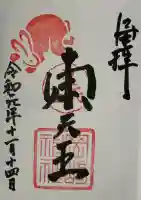 奉拝
東天王
令和元年十一月十四日